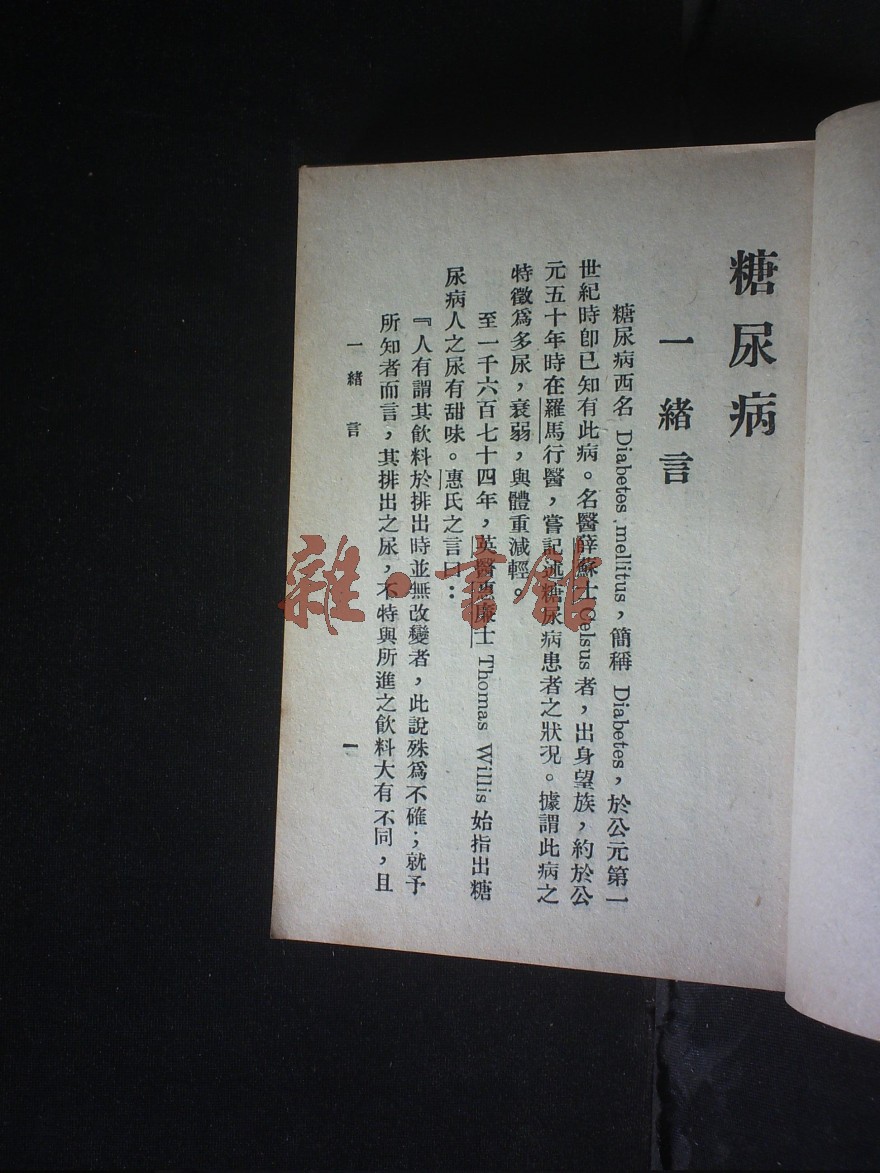 糖尿病
一　緒言
糖尿病西名 Diabetes mellitus，簡稱 Diabetes，於公元第一
世紀時卽已知有此病。名醫薛蘇士 Celsus 者，出身望族，約於公
元五十年時在羅馬行醫，嘗記述糖尿病患者之狀況。據謂此病之
特徵爲多尿，衰弱，與體重減輕。
至一千六百七十四年，英醫惠廉士 Thomas Willis 始指出糖
尿病人之尿有甜味。惠氏之言曰：
『人有謂其飲料於排出時並無改變者，此說殊爲不確；就予
所知者而言，其排出之尿，不特與所進之飲料大有不同，且
一　緒言
一
雜·書館